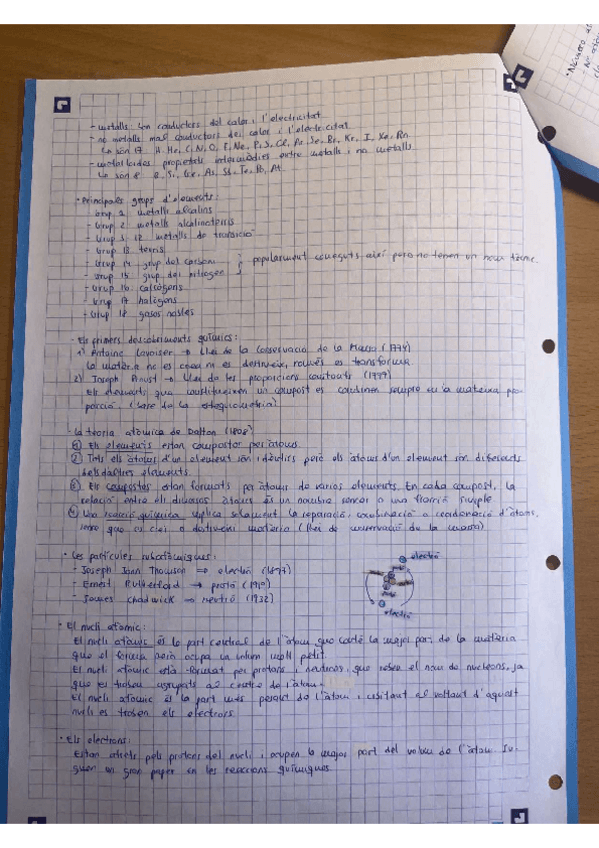 - metalls són conductors del calor i l'electricitat
- no metalls mal conductors del calor i l'electricitat
↳ són 17 H, He, C, N, O, F, Ne, P, S, Cl, Ar, Se, Br, Kr, I, Xe, Rn.
- metal·loides propietats intermèdies entre metalls i no metalls
↳ són 8 B, Si, Ge, As, Sb, Te, Po, At.
· Principals grups d'elements:
- Grup 1 metalls alcalins
- Grup 2 metalls alcalinoterris
- Grup 3-12 metalls de transició
- Grup 13 terris
- Grup 14 grup del carboni
- Grup 15 grup del nitrogen
} popularment coneguts així però no tenen un nom
- Grup 16 calcògens
- Grup 17 halògens
- Grup 18 gasos nobles
· Els primers descobriments químics:
1) Antoine Lavoiser → Llei de la Conservació de la Massa (1774)
La matèria no es crea ni es destrueix, només es transforma.
2) Joseph Proust → Llei de les proporcions constants (1799)
Els elements que constitueixen un compost es combinen sempre en la mateixa pro-
porció. (base de la estequiometria)
· La teoria atòmica de Dalton (1808)
1 Els elements estan compostos per àtoms.
2 Tots els àtoms d'un element són idèntics però els àtoms d'un element són diferents
dels d'altres elements.
3 Els compostos estan formats per àtoms de varios elements. En cada compost, la
relació entre els diversos àtoms és un nombre sencer o una fracció simple
4 Una reacció química implica solament la separació, combinació o reordenació d'àtoms,
sense que es creï o destrueixi matèria (llei de conservació de la massa)
· Les partícules subatòmiques:
- Joseph John Thomson → electró (1897)
- Ernest Rutherford → protó (1919)
- James Chadwick → neutró (1932)
electró
electró
· El nucli atòmic:
El nucli atòmic és la part central de l'àtom que conté la major part de la matèria
que el forma però ocupa un volum molt petit.
El nucli atòmic està format per protons i neutrons, que reben el nom de nucleons, ja
que es troben agrupats al centre de l'àtom.
El nucli atòmic és la part més pesant de l'àtom i al voltant d'aquest
nucli es troben els electrons.
· Els electrons:
Estan atrets pels protons del nucli i ocupen la major part del volum de l'àtom. Ju-
guen un gran paper en les reaccions químiques.